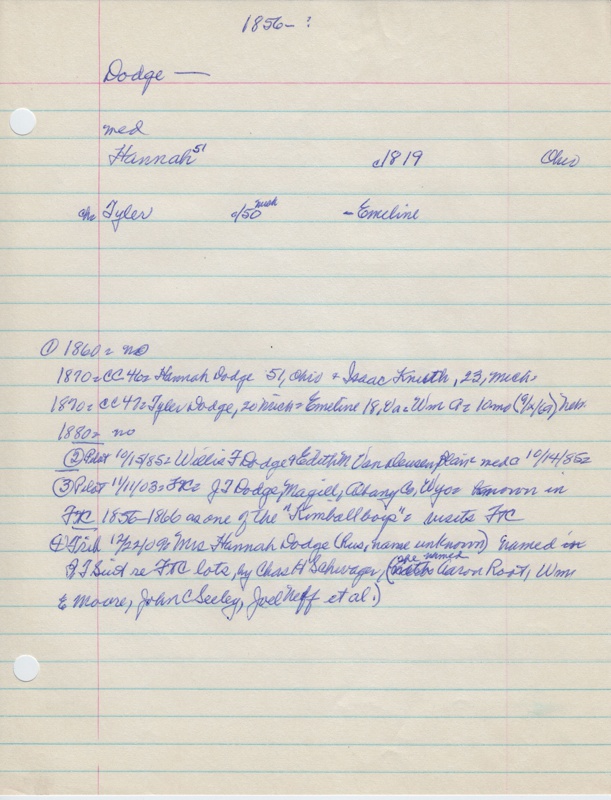 1856- ?
Dodge —
med
Hannah 51 c/1819 Ohio
chr Tyler c/50 Mich - Emeline
① 1860 = no
1870 = CC 46 = Hannah Dodge 51, Ohio + Isaac 23, Mich =
1870 = CC 47 = Tyler Dodge, 20 Mich = Emeline 18, = Wm A = 10 mo (9/2/69) Nebr.
1880 = no
② Pilot 10/15/85 = Willis F Dodge & Edith M Van Deusen, med 10/14/85 =
③ Pilot 11/11/03 = FtC = J T Dodge, Magill, Co, Wyo = known in
FtC 1856-1866 as one of the "Kimball boys" = visits FtC
④ Trib 12/22/09 = Mrs Hannah Dodge (hus, name unknown) named in
Q T Suit re FtC lots, by Chas H Schwager, (also named Aaron Root, Wm
E Moore, John C Seeley, Joel Neff et al.)